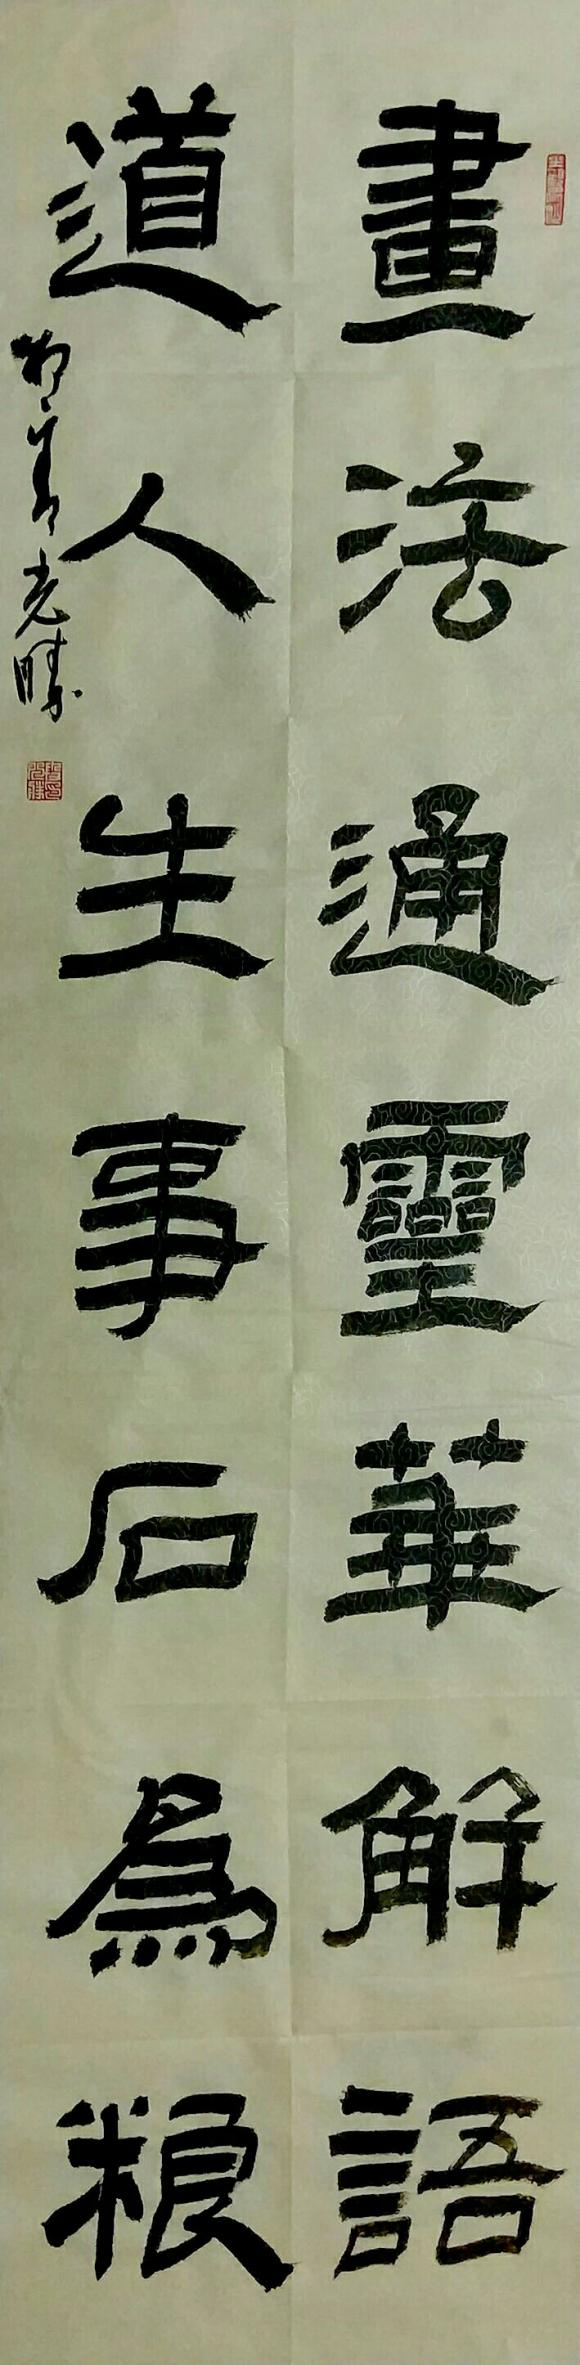 畫法通靈華解語
道人生事石爲粮
光勝